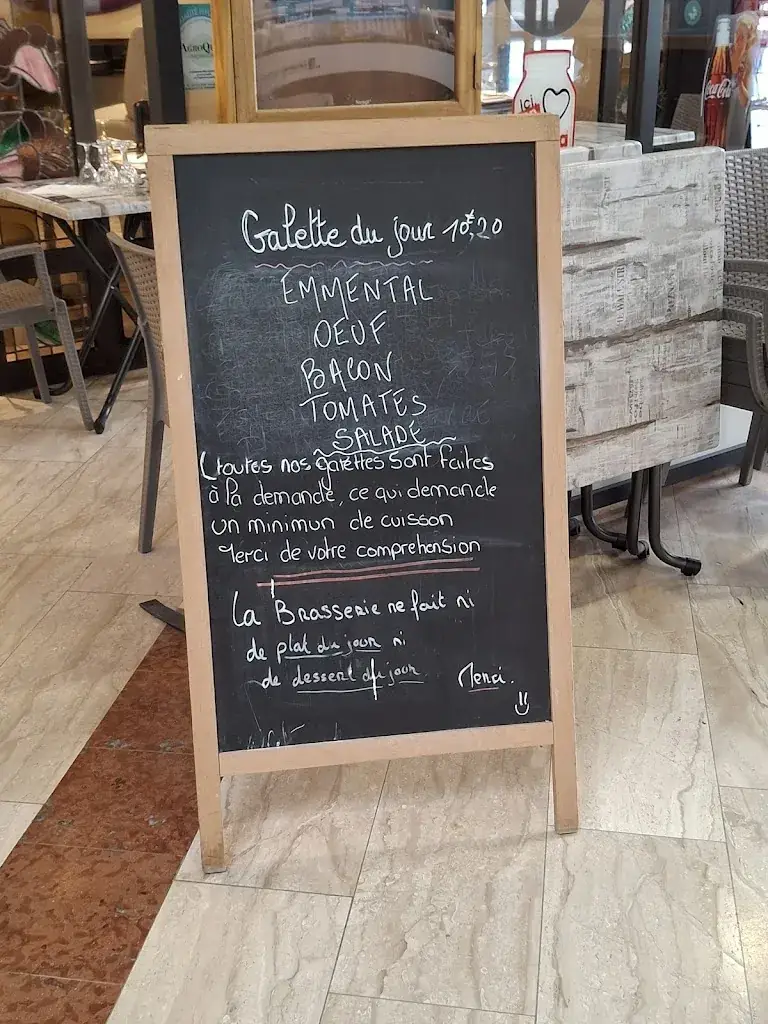 Galette du jour 10€,20
EMMENTAL
OEUF
BACON
TOMATES
SALADE
(toutes nos galettes sont faites
à la demande, ce qui demande
un minimun de cuisson
Merci de votre comprehension
La Brasserie ne fait ni
de plat du jour ni
de dessert du jour
Merci.
ici
Coca-Cola